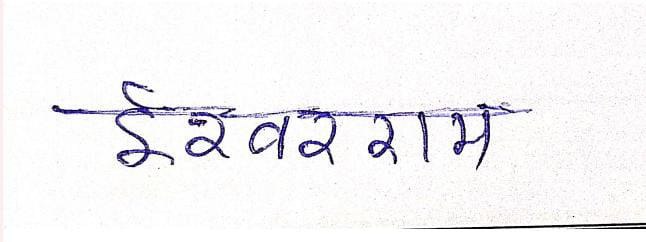 ईश्वर राम